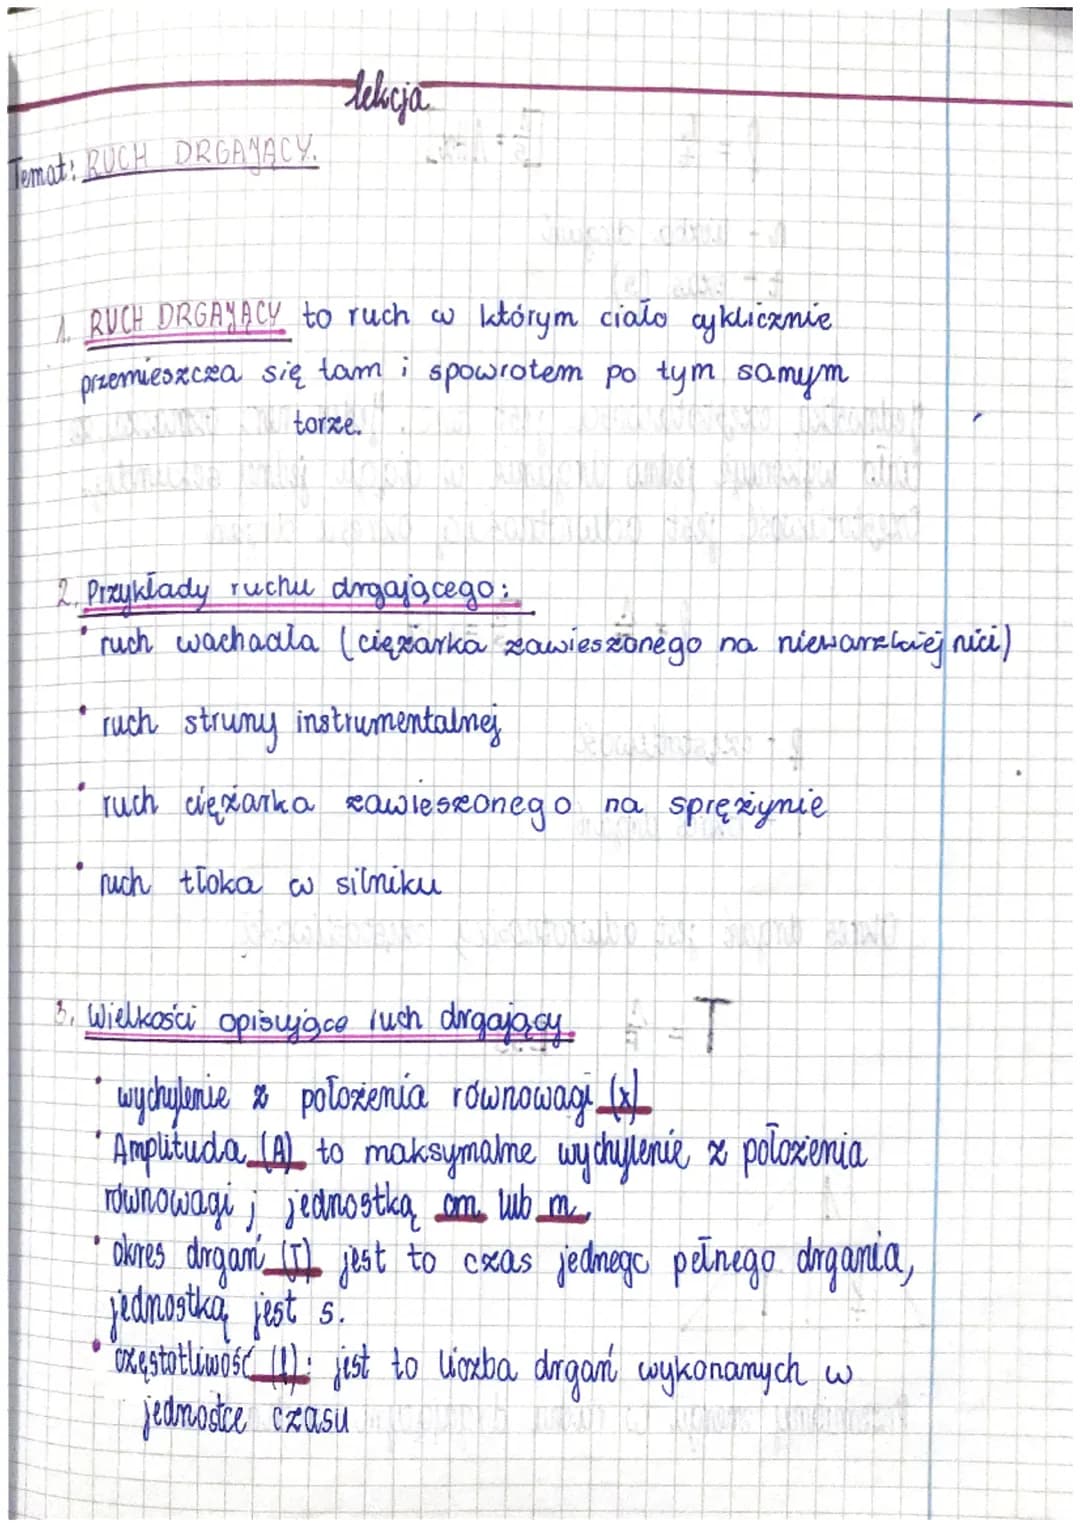 lekcja
Temat: RUCH DRGAJĄCY.
1. RUCH DRGAJĄCY to ruch w którym ciało cyklicznie
przemieszcza się tam i spowrotem po tym samym
torze.
2. Przykłady ruchu drgającego:
• ruch wachadła (ciężarka zawieszonego na niewarzkiej nici)
• ruch struny instrumentalnej
• ruch ciężarka zawieszonego na sprężynie
• ruch tłoka w silniku
3. Wielkości opisujące ruch drgający
• wychylenie z położenia równowagi (x)
• Amplituda (A) to maksymalne wychylenie z położenia
równowagi ; jednostką cm lub m.
• okres drgań (T) jest to czas jednego pełnego drgania,
jednostką jest s.
• częstotliwość (f): jest to liczba drgań wykonanych w
jednostce czasu